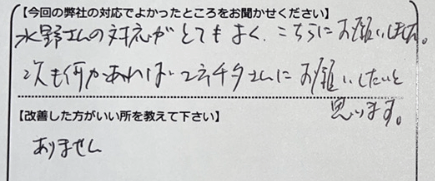 【今回の弊社の対応でよかったところをお聞かせください】
水野さんの対応がとてもよく、こちらにお願いしました。
次も何かあればエネチタさんにお願いしたいと
思います。
【改善した方がいい所を教えて下さい】
ありません